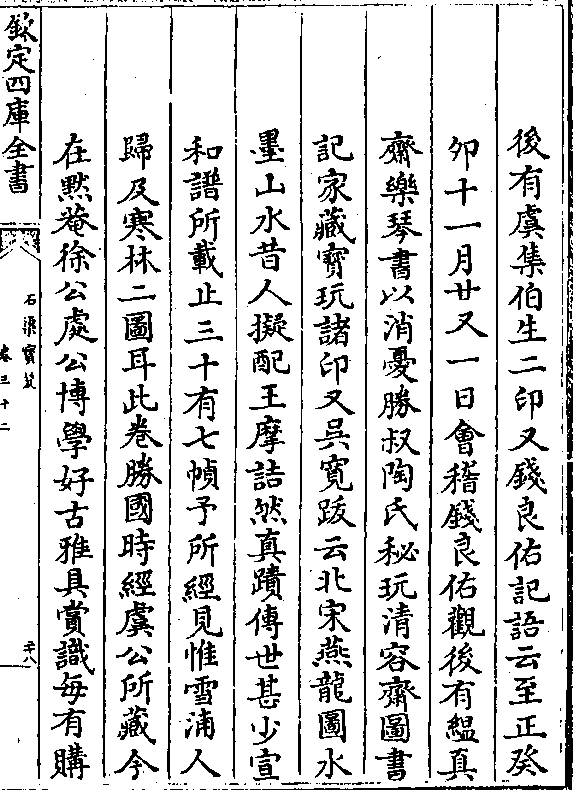 後有虞集伯生二印又錢良佑記語云至正癸
卯十一月廿又一日會稽錢良佑觀後有緼真
齋樂琴書以消憂勝叔陶氏秘玩清容齋圖書
記家藏寳玩諸印又吳寛跋云北宋燕龍圖水
墨山水昔人擬配王摩詰然真蹟傳世甚少宣
和譜所載止三十有七幀予所經見惟雪浦人
歸及寒林二圖耳此卷勝國時經虞公所藏今
在黙菴徐公處公博學好古雅具賞識每有購
欽定四庫全書
石渠寳笈
卷三十二
二十八